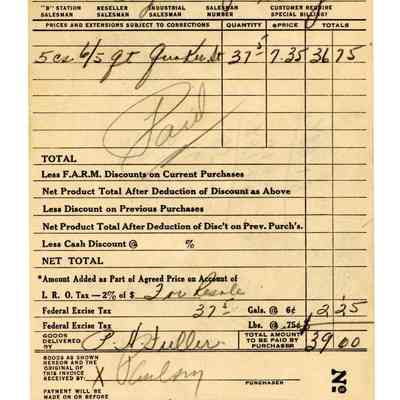 "B" STATION SALESMAN RESELLER SALESMAN INDUSTRIAL SALESMAN SALESMAN NUMBER CUSTOMER REQUIRE SPECIAL BILLING?
PRICES AND EXTENSIONS SUBJECT TO CORRECTIONS QUANTITY @PRICE TOTALS
5 cs 6/5 qt Quaker St 37 5 7.35 36 75
Paid
TOTAL
Less F.A.R.M. Discounts on Current Purchases
Net Product Total After Deduction of Discount as Above
Less Discount on Previous Purchases
Net Product Total After Deduction of Disc't on Prev. Purch's.
Less Cash Discount @ %
NET TOTAL
*Amount Added as Part of Agreed Price on Account of
I. R. O. Tax—2% of $ For Resale
Federal Excise Tax 37 5 Gals. @ 6¢ 2 25
Federal Excise Tax Lbs. @ .75¢ $
GOODS DELIVERED BY P. H. Fuller TOTAL AMOUNT TO BE PAID BY PURCHASER 39 00
GOODS AS SHOWN HEREON AND THE ORIGINAL OF THIS INVOICE RECEIVED BY: X PURCHASER
PAYMENT WILL BE MADE ON OR BEFORE
No